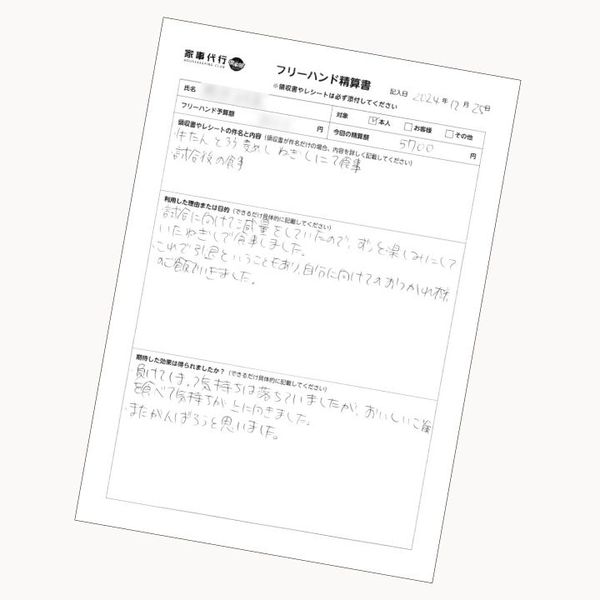 家事代行
HOUSEKEEPING CLUB
フリーハンド精算書
※領収書やレシートは必ず添付してください
記入日 2024年12月25日
氏名
対象 ☑本人 □お客様 □その他
フリーハンド予算額 円
今回の精算額 5700 円
領収書やレシートの件名と内容(領収書が件名だけの場合、内容を詳しく記載してください)
牛たん とろろ 麦めし ねぎしにて食事
試合後の食事
利用した理由または目的(できるだけ具体的に記載してください)
試合に向けて減量をしていたので、ずっと楽しみにして
いたねぎしで食事しました。
これで引退ということもあり、自分に向けてのおつかれ様
のご飯でいきました。
期待した効果は得られましたか?(できるだけ具体的に記載してください)
負けてしまって気持ちは落ちていましたが、おいしいご飯
を食べて気持ちが上に向きました。
またがんばろうと思いました。